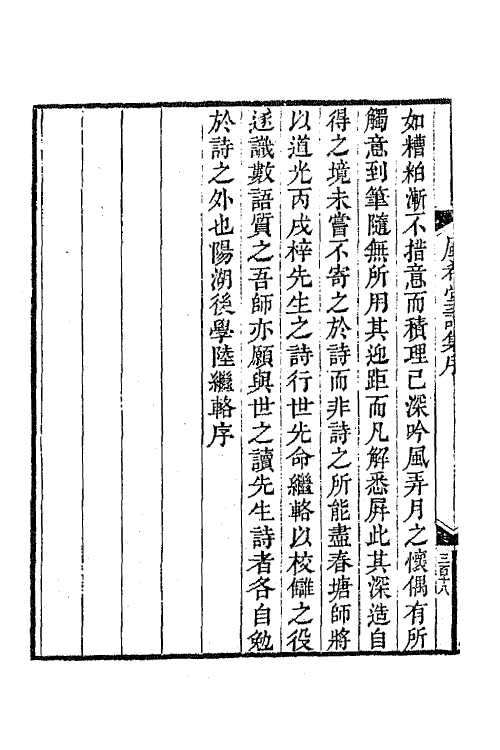 風希堂詩集序
三百十八
如糟粕漸不措意而積理已深吟風弄月之懷偶有所
觸意到筆隨無所用其迎距而凡解悉屏此其深造自
得之境未嘗不寄之於詩而非詩之所能盡春塘師將
以道光丙戌梓先生之詩行世先命繼輅以校讎之役
迺識數語質之吾師亦願與世之讀先生詩者各自勉
於詩之外也陽湖後學陸繼輅序